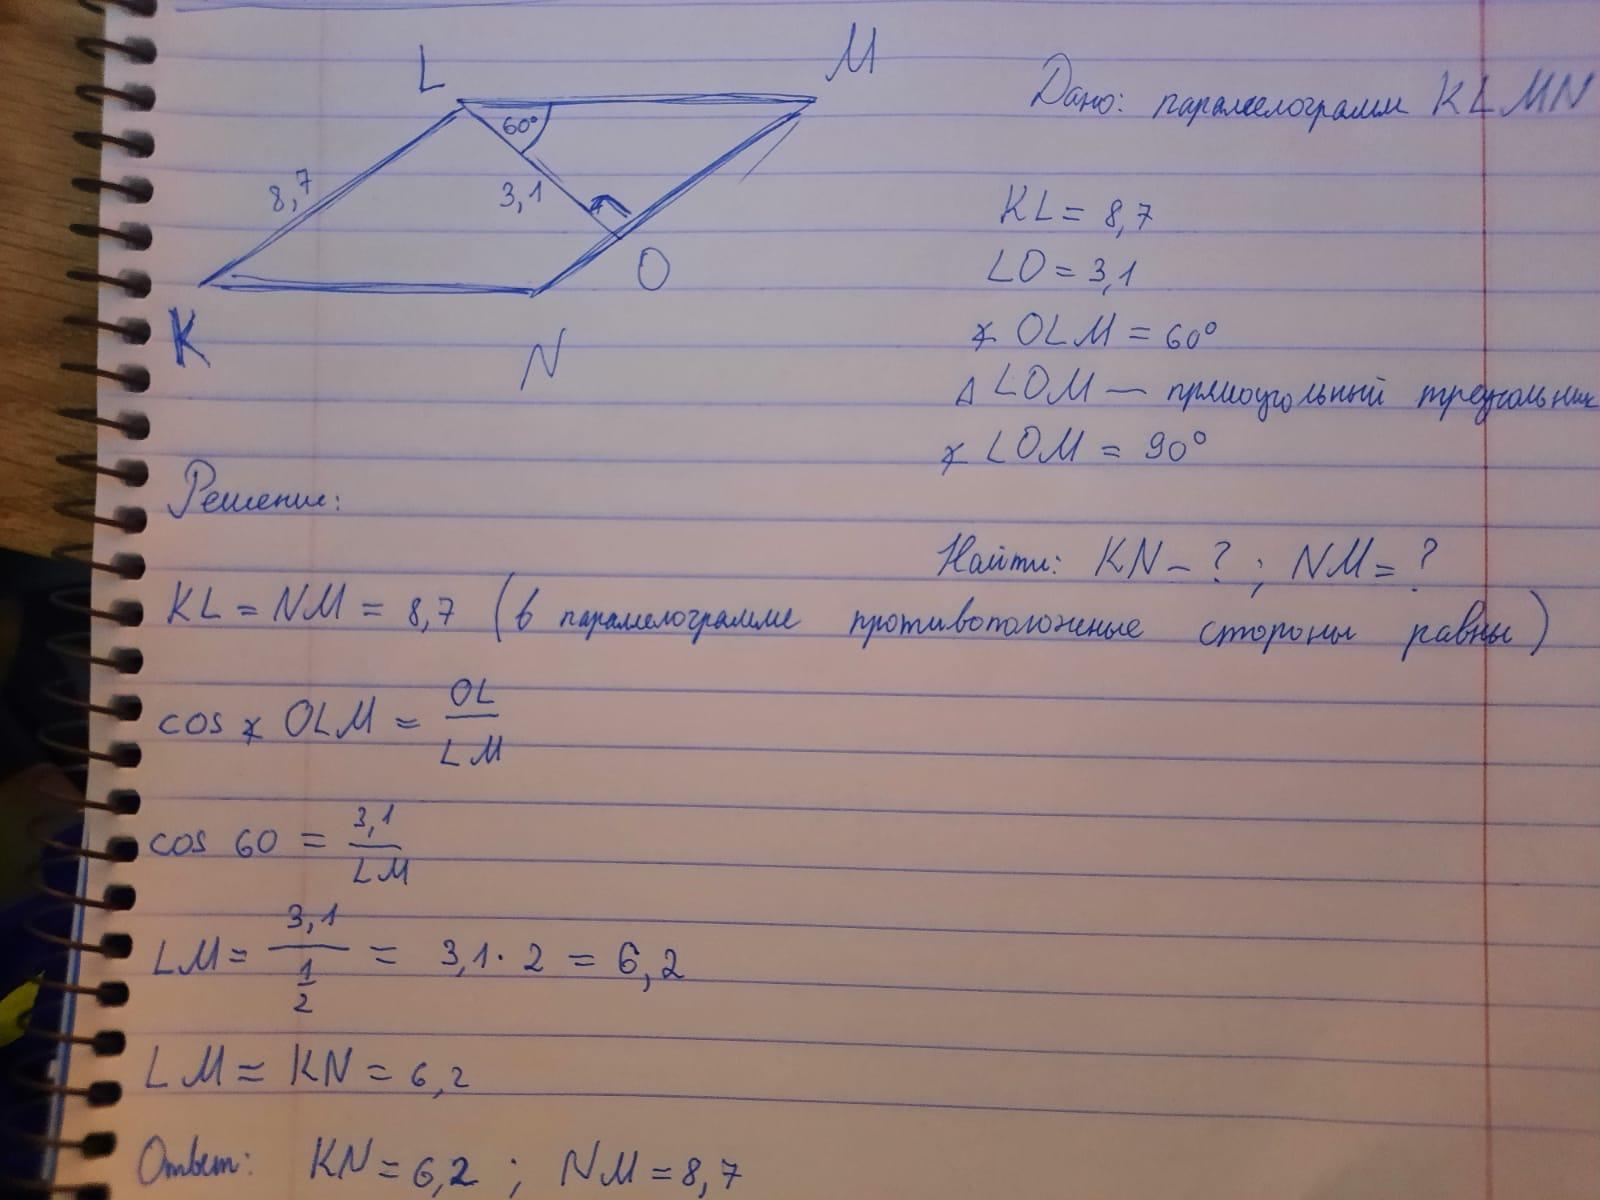 L
M
Дано: параллелограмм KLMN
60°
8,7
3,1
KL = 8,7
O
LO = 3,1
K
N
∡ OLM = 60°
Δ LOM — прямоугольный треугольник
∡ LOM = 90°
Решение:
Найти: KN – ? ; NM = ?
KL = NM = 8,7 (в параллелограмме противоположные стороны равны)
cos ∡ OLM = OL / LM
cos 60 = 3,1 / LM
LM = 3,1 / (1/2) = 3,1 · 2 = 6,2
LM = KN = 6,2
Ответ: KN = 6,2 ; NM = 8,7